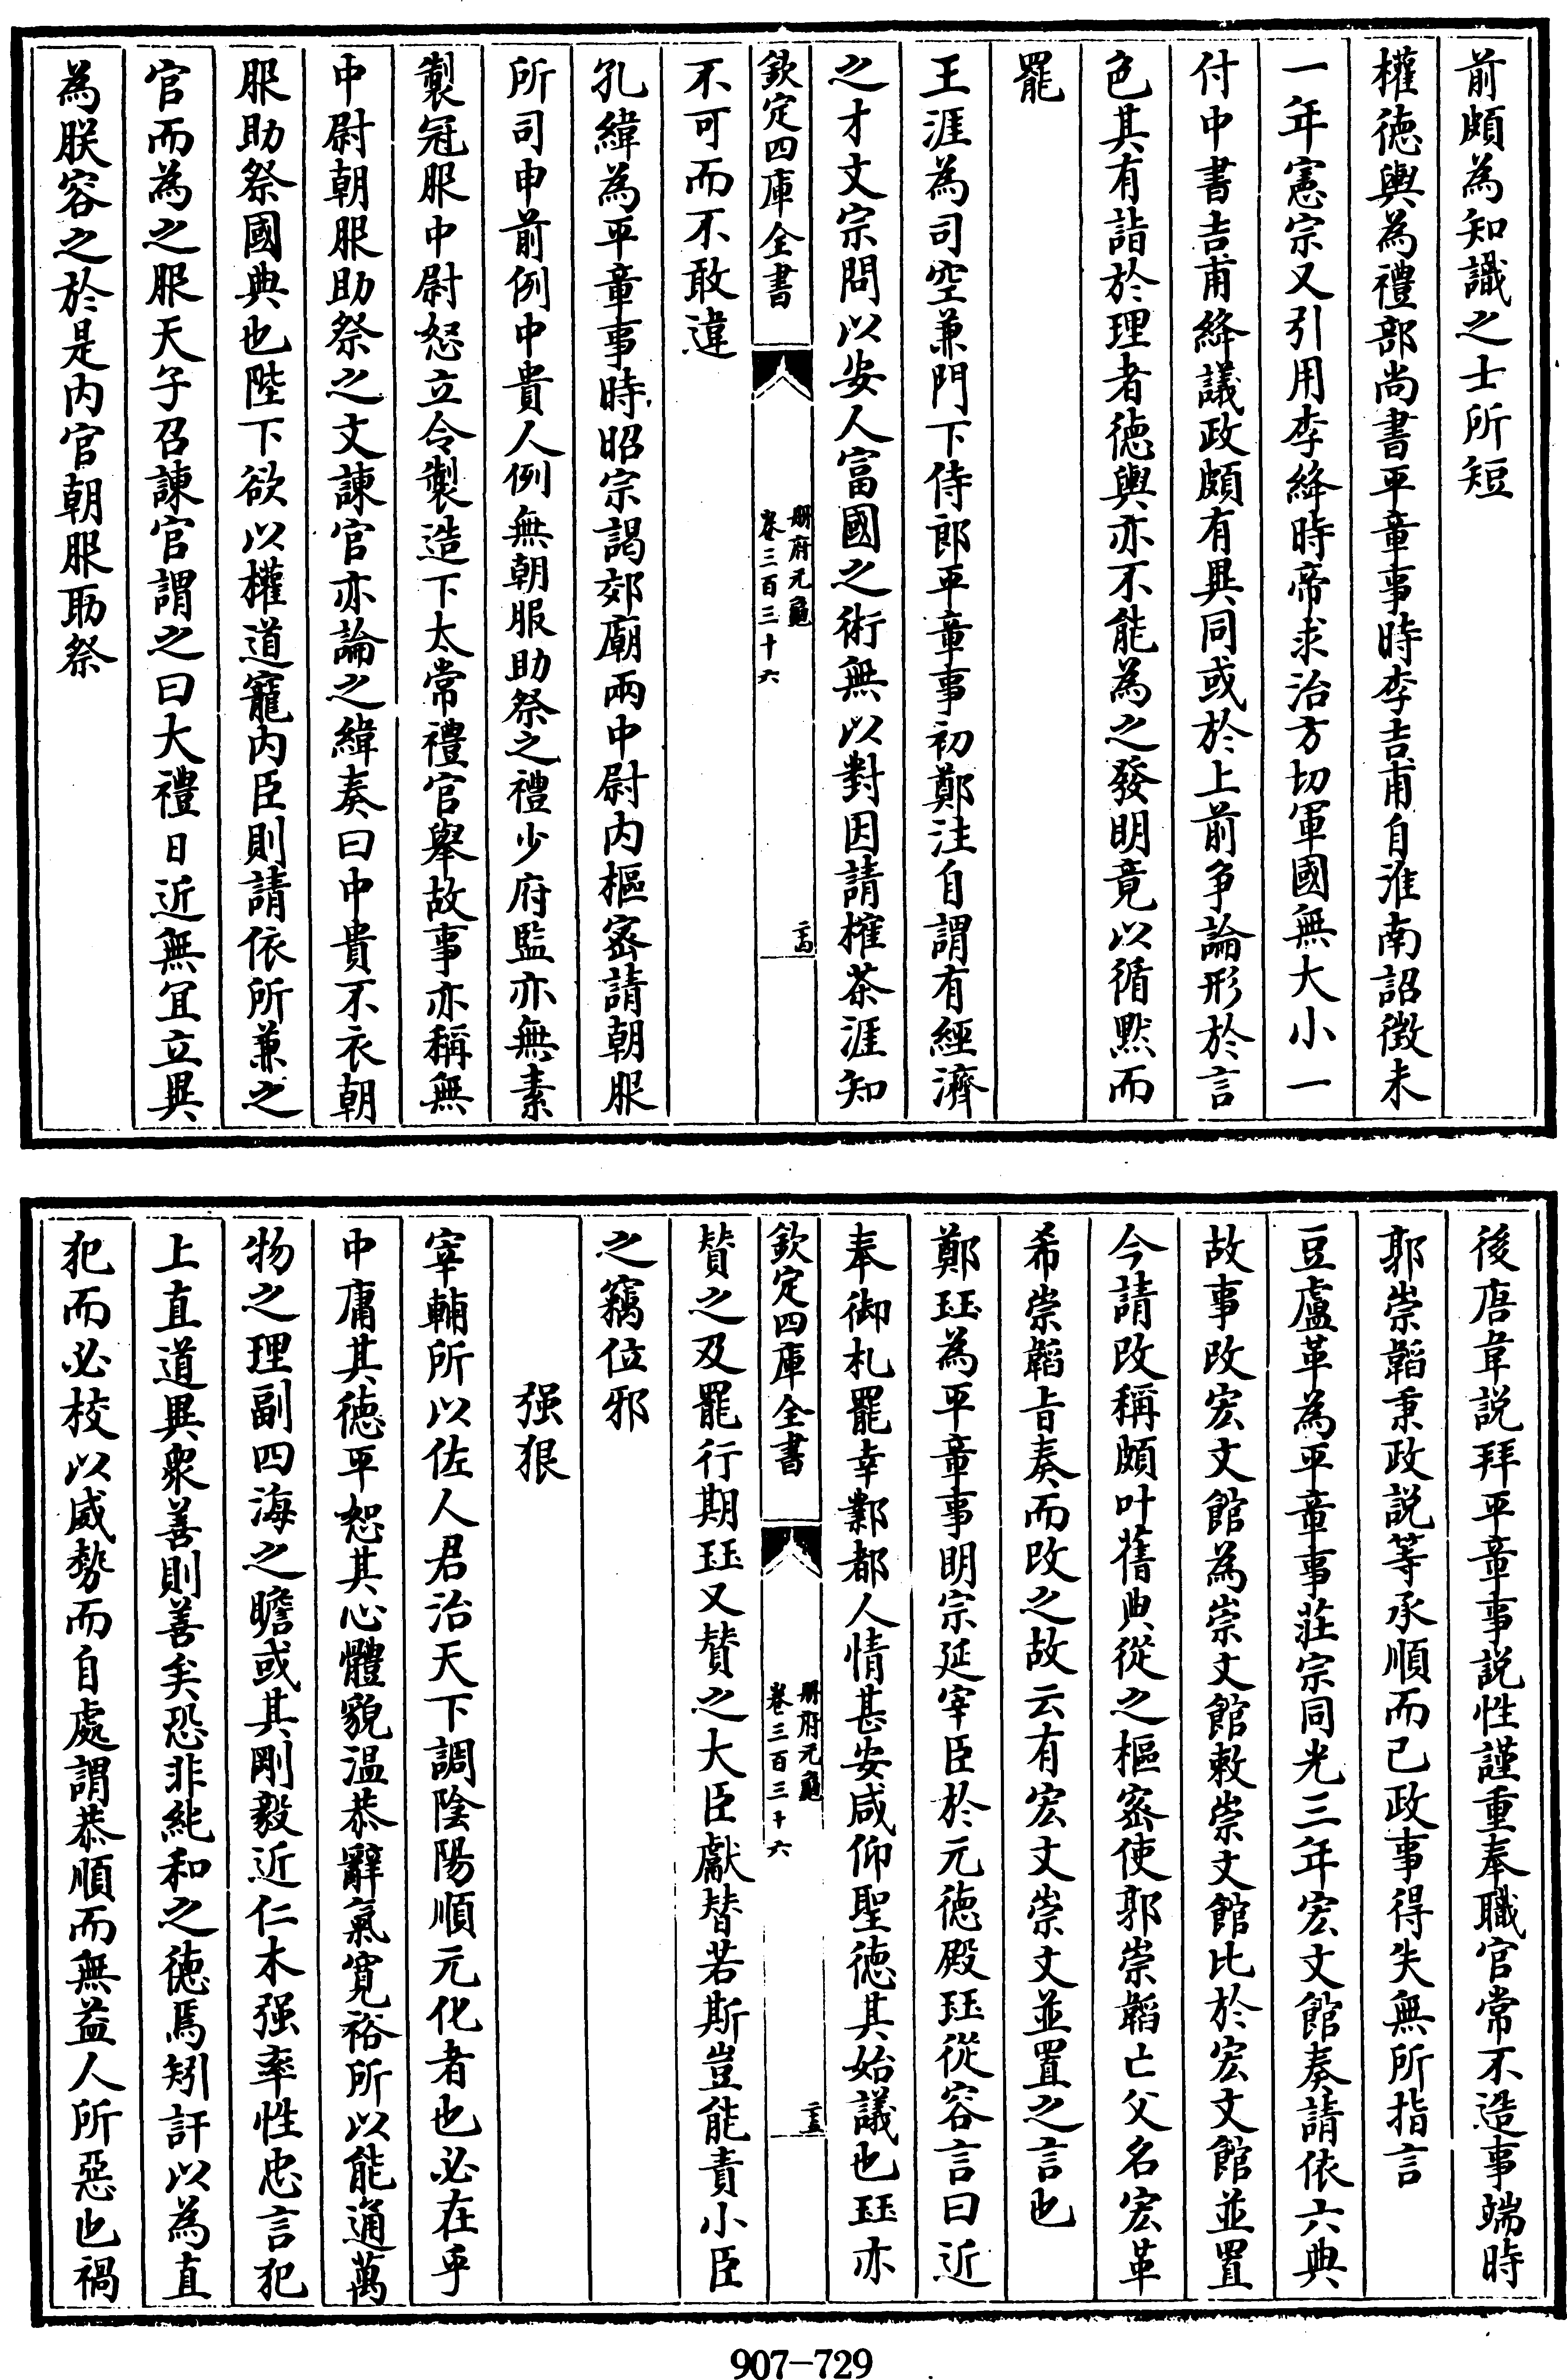 前頗為知識之士所短
權徳輿為禮部尚書平章事時李吉甫自淮南詔徵未
一年憲宗又引用李絳時帝求治方切軍國無大小一
付中書吉甫絳議政頗有異同或於上前爭論形於言
色其有詣於理者徳輿亦不能為之發明竟以循黙而
罷
王涯為司空兼門下侍郎平章事初鄭注自謂有經濟
之才文宗問以安人富國之術無以對因請榷茶涯知
欽定四庫全書
冊府元龜
卷三百三十六
二十四
不可而不敢違
孔緯為平章事時昭宗謁郊廟兩中尉内樞密請朝服
所司申前例中貴人例無朝服助祭之禮少府監亦無素
製冠服中尉怒立令製造下太常禮官舉故事亦稱無
中尉朝服助祭之文諫官亦論之緯奏曰中貴不衣朝
服助祭國典也陛下欲以權道寵内臣則請依所兼之
官而為之服天子召諫官謂之曰大禮日近無宜立異
為朕容之於是内官朝服助祭
後唐韋説拜平章事説性謹重奉職官常不造事端時
郭崇韜秉政説等承順而已政事得失無所指言
豆盧革為平章事莊宗同光三年宏文館奏請依六典
故事改宏文館為崇文館敕崇文館比於宏文館並置
今請改稱頗叶舊典從之樞密使郭崇韜亡父名宏革
希崇韜旨奏而改之故云有宏文崇文並置之言也
鄭珏為平章事明宗延宰臣於元徳殿珏從容言曰近
奉御札罷幸鄴都人情甚安咸仰聖徳其始議也珏亦
欽定四庫全書
冊府元龜
卷三百三十六
二十五
賛之及罷行期珏又賛之大臣獻替若斯豈能責小臣
之竊位邪
强狠
宰輔所以佐人君治天下調陰陽順元化者也必在乎
中庸其徳平恕其心體貌温恭辭氣寛裕所以能通萬
物之理副四海之瞻或其剛毅近仁木强率性忠言犯
上直道異衆善則善矣恐非純和之徳焉矧訐以為直
犯而必校以威勢而自處謂恭順而無益人所惡也禍
907-729